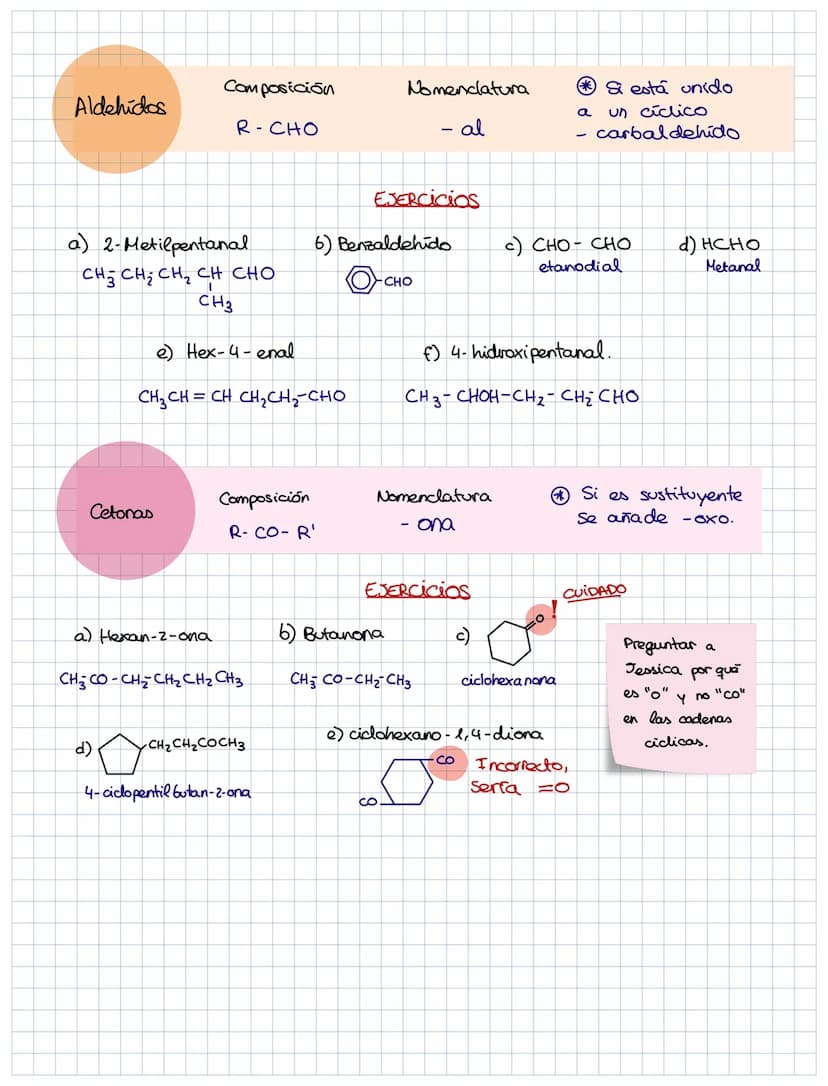 Aldehídos
Composición
R - CHO
Nomenclatura
- al
* Si está unido
a un cíclico
- carbaldehído
EJERCICIOS
a) 2-Metilpentanal
CH3-CH2-CH2 CH CHO
CH3
b) Benzaldehído
-CHO
c) CHO - CHO
etanodial
d) HCHO
Metanal
e) Hex-4-enal
CH3CH = CH CH2CH2-CHO
f) 4-hidroxipentanal.
CH3 - CHOH-CH2 - CH2-CHO
Cetonas
Composición
R - CO - R'
Nomenclatura
- ona
* Si es sustituyente
se añade -oxo.
EJERCICIOS
a) Hexan-2-ona
CH3-CO-CH2-CH2CH2CH3
b) Butanona
CH3-CO-CH2-CH3
c)
=O
! CUIDADO
ciclohexanona
Preguntar a
Jessica por qué
es "o" y no "co"
en las cadenas
cíclicas.
d)
-CH2CH2COCH3
4-ciclopentilbutan-2-ona
e) ciclohexano-1,4-diona
CO
CO
Incorrecto,
sería =O